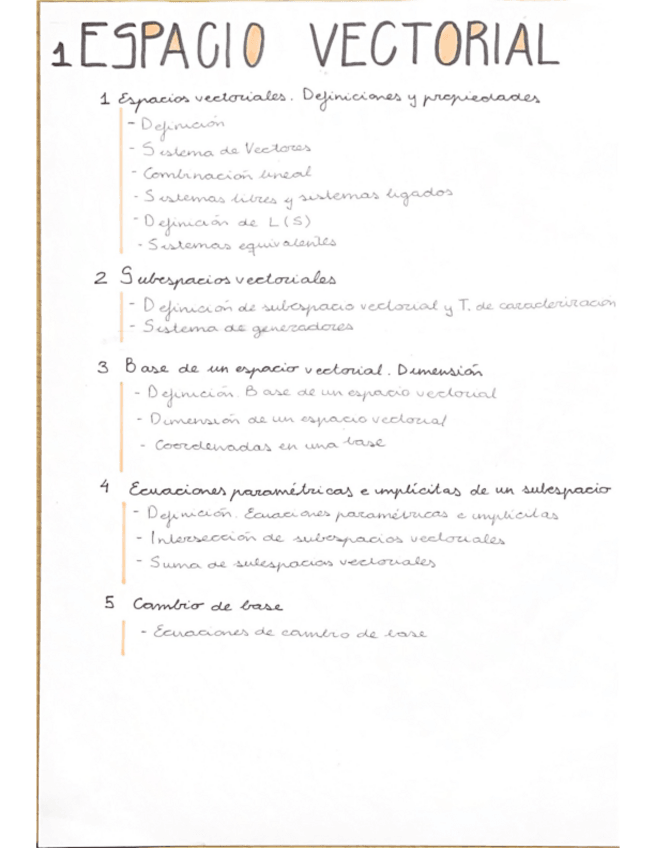 1 ESPACIO VECTORIAL
1 Espacios vectoriales. Definiciones y propiedades
- Definición
- Sistema de Vectores
- Combinación lineal
- Sistemas libres y sistemas ligados
- Definición de L(S)
- Sistemas equivalentes
2 Subespacios vectoriales
- Definición de subespacio vectorial y T. de caracterización
- Sistema de generadores
3 Base de un espacio vectorial. Dimensión
- Definición. Base de un espacio vectorial
- Dimensión de un espacio vectorial
- Coordenadas en una base
4 Ecuaciones paramétricas e implícitas de un subespacio
- Definición. Ecuaciones paramétricas e implícitas
- Intersección de subespacios vectoriales
- Suma de subespacios vectoriales
5 Cambio de base
- Ecuaciones de cambio de base